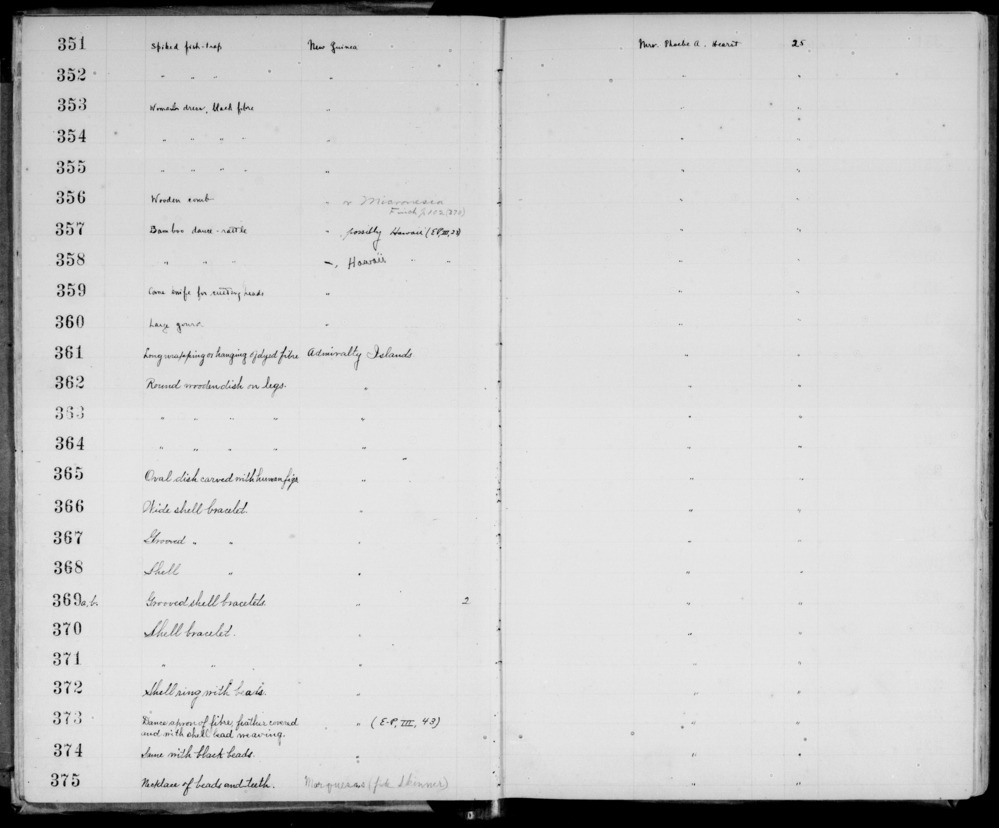 351 Spiked fish-trap New Guinea Mrs. Phoebe A. Hearst 25
352 " " " " " "
353 Woman's dress, black fibre " " "
354 " " " " " " "
355 " " " " " " "
356 Wooden comb " or Micronesia " "
Finsch p.
357 Bamboo dance-rattle " , possibly Hawaii (EP, III, 28) " "
358 " " " –, Hawaii " " " "
359 Cane knife for cutting heads " " "
360 Large gourd. " " "
361 Long wrapping or hanging of dyed fibre Admiralty Islands " "
362 Round wooden dish on legs. " " "
363 " " " " " " "
364 " " " " " " "
365 Oval dish carved with human figs. " " "
366 Wide shell bracelet. " " "
367 Grooved " " " " "
368 Shell " " " "
369 a, b. Grooved shell bracelets. " 2 " "
370 Shell bracelet. " " "
371 " " " " "
372 Shell ring with beads. " " "
373 Dance apron of fibre, feather covered " " (E-P, III, 43) " "
and with shell bead weaving.
374 Same with black beads. " " "
375 Necklace of beads and teeth. Marquesas (fide Skinner) " "